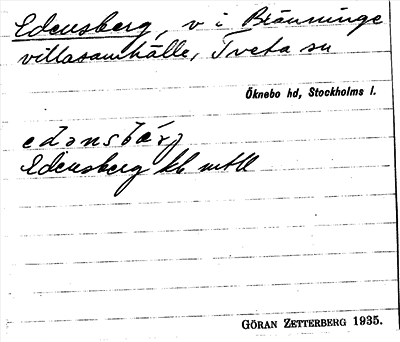 Edensberg, v i Bränninge
villasamhälle, Tveta sn
Öknebo hd, Stockholms l.
edənsbärj
Edensberg kb mtl
GÖRAN ZETTERBERG 1935.